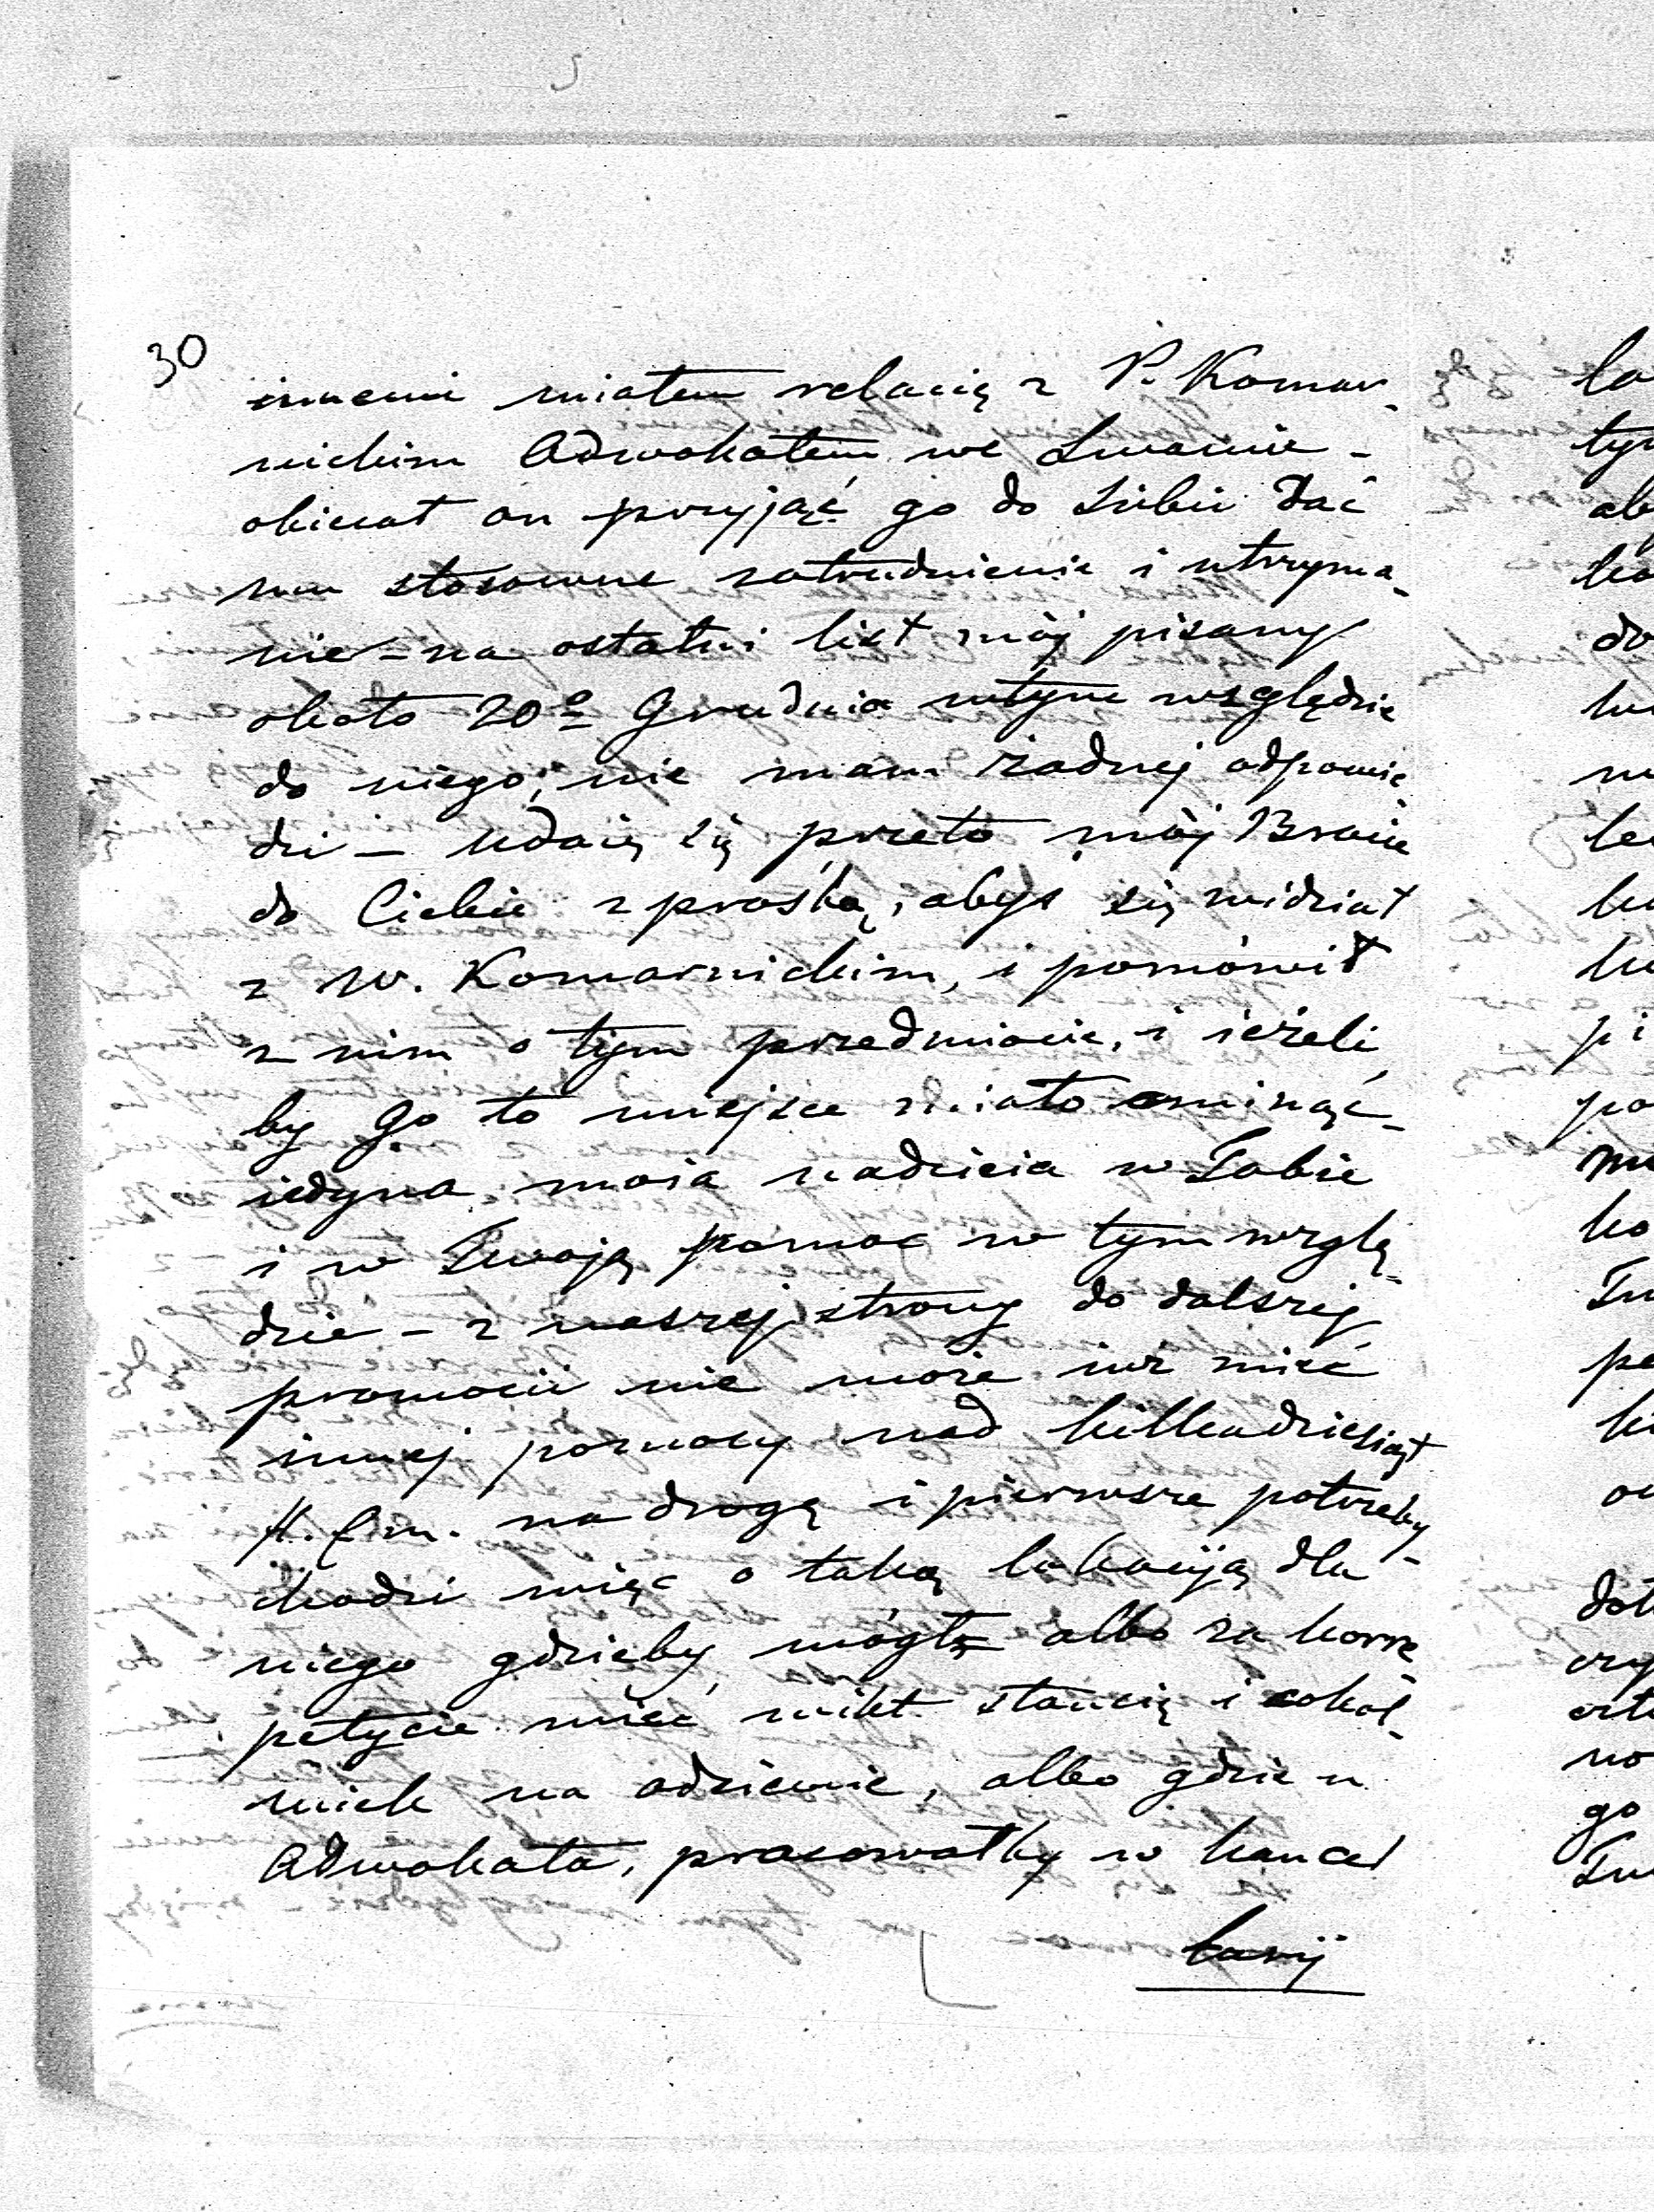 30
innemi miałem relacią z P. Komar-
nickim Adwokatem we Lwowie -
obiecał on przyjąć go do siebie dać
mu stosowne zatrudnienie i utrzyma-
nie - na ostatni list mój pisany
około 20º Grudnia wtym względzie
do niego, nie mam żadnej odpowie
dzi - udaię się przeto mój Bracie
do Ciebie z prośbą, abyś się widział
z W. Komarnickim, i pomówił
z nim o tym przedmiocie, i ieżeli
by go to miejsce miało ominąć -
iedyna moia nadzieia w Tobie
i w Twoją pomoc w tym wzglę-
dzie - z naszej strony do dalszej
promocii nie może iuż mieć
innej pomocy nad kilkadziesiąt
fl. C m. na drogę i pierwsze potrzeby -
chodzi więc o taką lokaciją dla
niego gdzieby mógł albo za korre
petycie mieć wikt stancią i cokol-
wiek na odzienie, albo gdzie u
Adwokata, pracowałby w kancel
larij
la
tym
ab
ko
do
pi
po
ko
Tw
pe
no
go
Tw